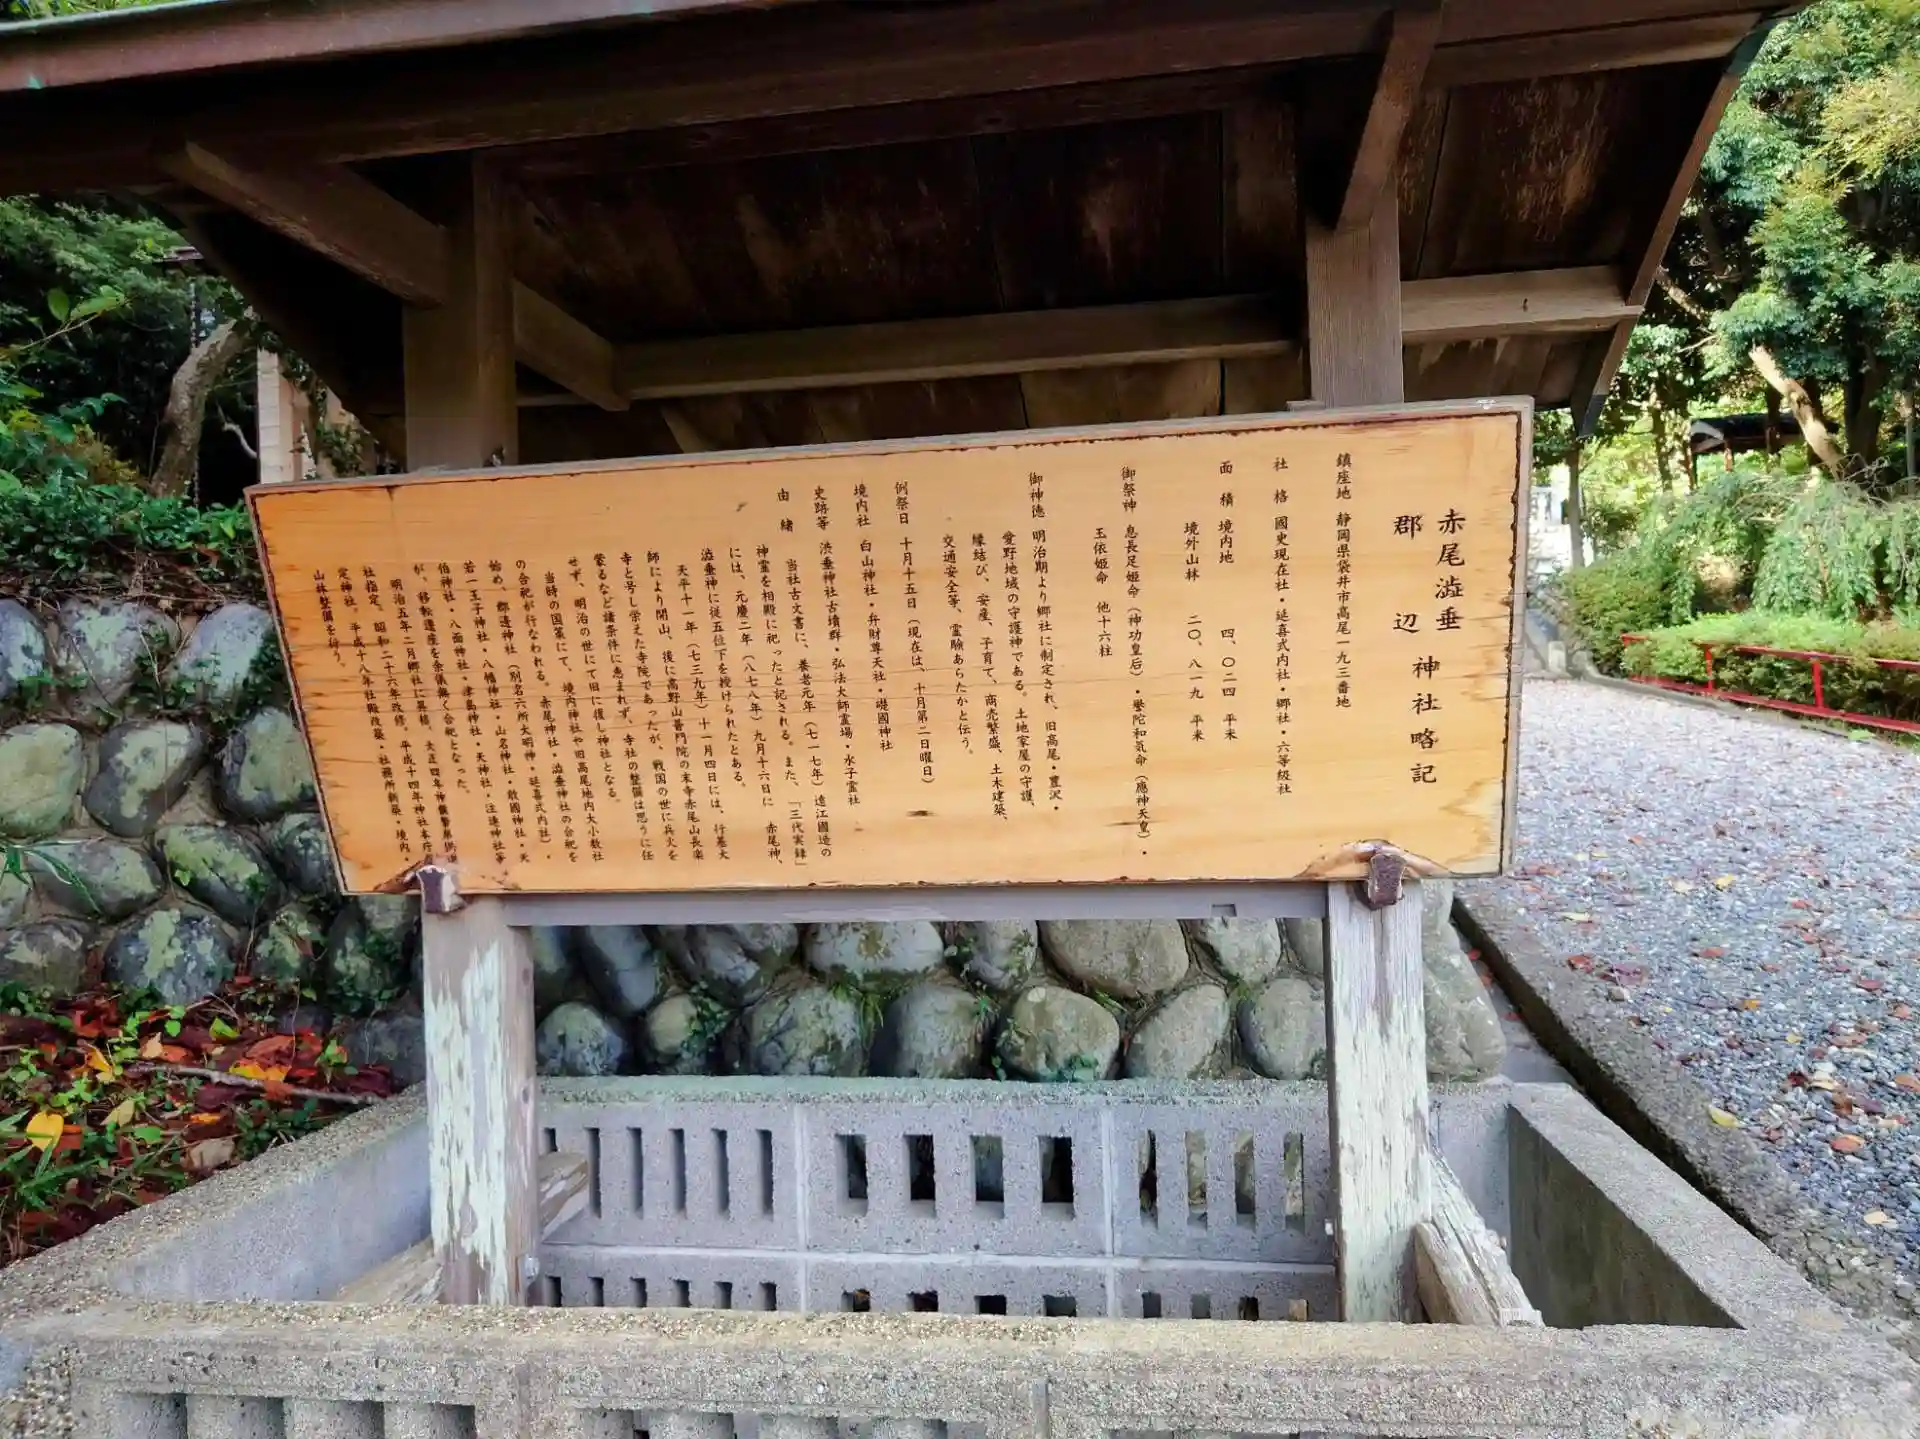 赤尾澁垂
郡辺 神社略記
鎮座地 静岡県袋井市高尾一九三番地
社格 國史現在社・延喜式内社・郷社・六等級社
面積 境内地 四、〇二四 平米
境外山林 二〇、八一九 平米
御祭神 息長足姫命（神功皇后）・譽陀和気命（應神天皇）・
玉依姫命 他十六柱
御神徳 明治期より郷社に制定され、旧高尾・豊沢・
愛野地域の守護神である。土地家屋の守護、
縁結び、安産、子育て、商売繁盛、土木建築、
交通安全等、霊験あらたかと伝う。
例祭日 十月十五日（現在は、十月第二日曜日）
境内社 白山神社・弁財尊天社・礎國神社
史跡等 渋垂神社古墳群・弘法大師霊場・水子霊社
由緒 当社古文書に、養老元年（七一七年）遠江國造の
神霊を相殿に祀ったと記される。また、「三代実録」
には、元慶二年（八七八年）九月十六日に 赤尾神、
澁垂神に従五位下を授けられたとある。
天平十一年（七三九年）十一月四日には、行基大
師により開山、後に高野山普門院の末寺赤尾山長楽
寺と号し栄えた寺院であったが、戦国の世に兵火を
蒙るなど諸条件に恵まれず、寺社の整備は思うに任
せず、明治の世にて旧に復し神社となる。
当時の国策にて、境内神社や旧高尾地内大小数社
の合祀が行なわれる。赤尾神社・澁垂神社の合祀を
始め、郡邊神社（別名六所大明神・延喜式内社）・
若一王子神社・八幡神社・山名神社・敢國神社・天
伯神社・八面神社・津島神社・天神社・注連神社等
が、移転遷座を余儀無く合祀となった。
明治五年二月郷社に昇格、大正四年神饌幣帛供進
社指定。昭和二十六年改修、平成十四年神社本庁
定神社、平成十八年社殿改築・社務所新築・境内・
山林整備を行う。